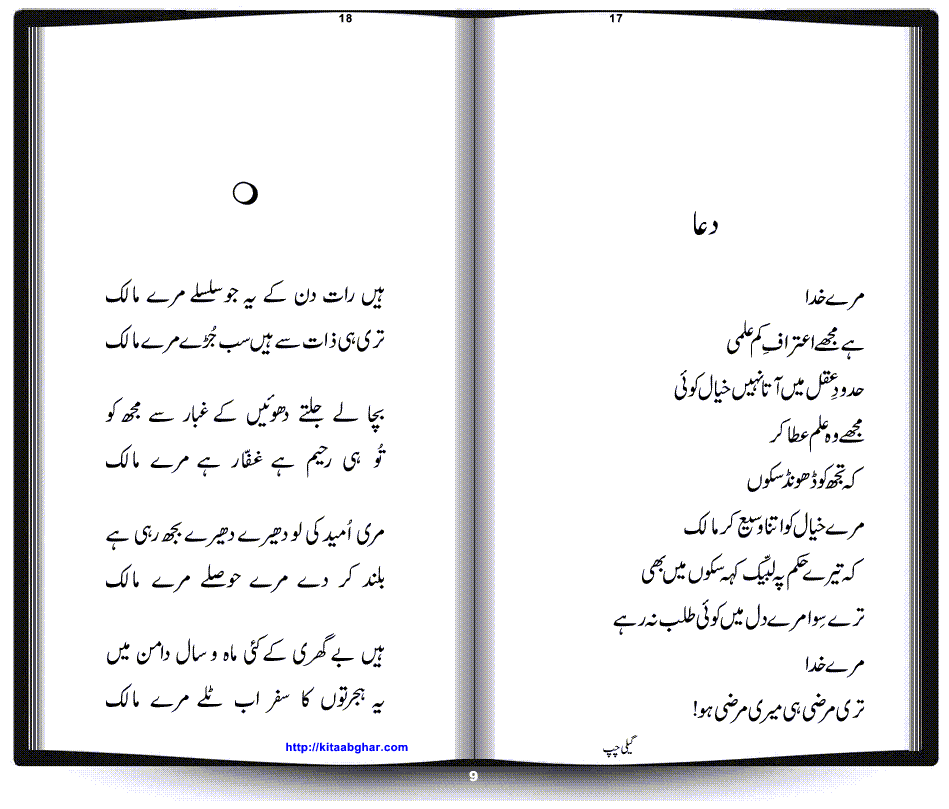 17
دعا
مرے خدا
ہے مجھے اعترافِ کم علمی
حدودِ عقل میں آتا نہیں خیال کوئی
مجھے وہ علم عطا کر
کہ تجھ کو ڈھونڈ سکوں
مرے خیال کو اتنا وسیع کر مالک
کہ تیرے حکم پہ لبیّک کہہ سکوں میں بھی
ترے سِوا مرے دل میں کوئی طلب نہ رہے
مرے خدا
تری مرضی ہی میری مرضی ہو!
گیلی چپ
18
ہیں رات دن کے یہ جو سلسلے مرے مالک
تری ہی ذات سے ہیں سب جُڑے مرے مالک
بچا لے جلتے دھوئیں کے غبار سے مجھ کو
تُو ہی رحیم ہے غفّار ہے مرے مالک
مری اُمید کی لو دھیرے دھیرے بجھ رہی ہے
بلند کر دے مرے حوصلے مرے مالک
ہیں بے گھری کے کئی ماہ و سال دامن میں
یہ ہجرتوں کا سفر اب ٹلے مرے مالک
http://kitaabghar.com
9